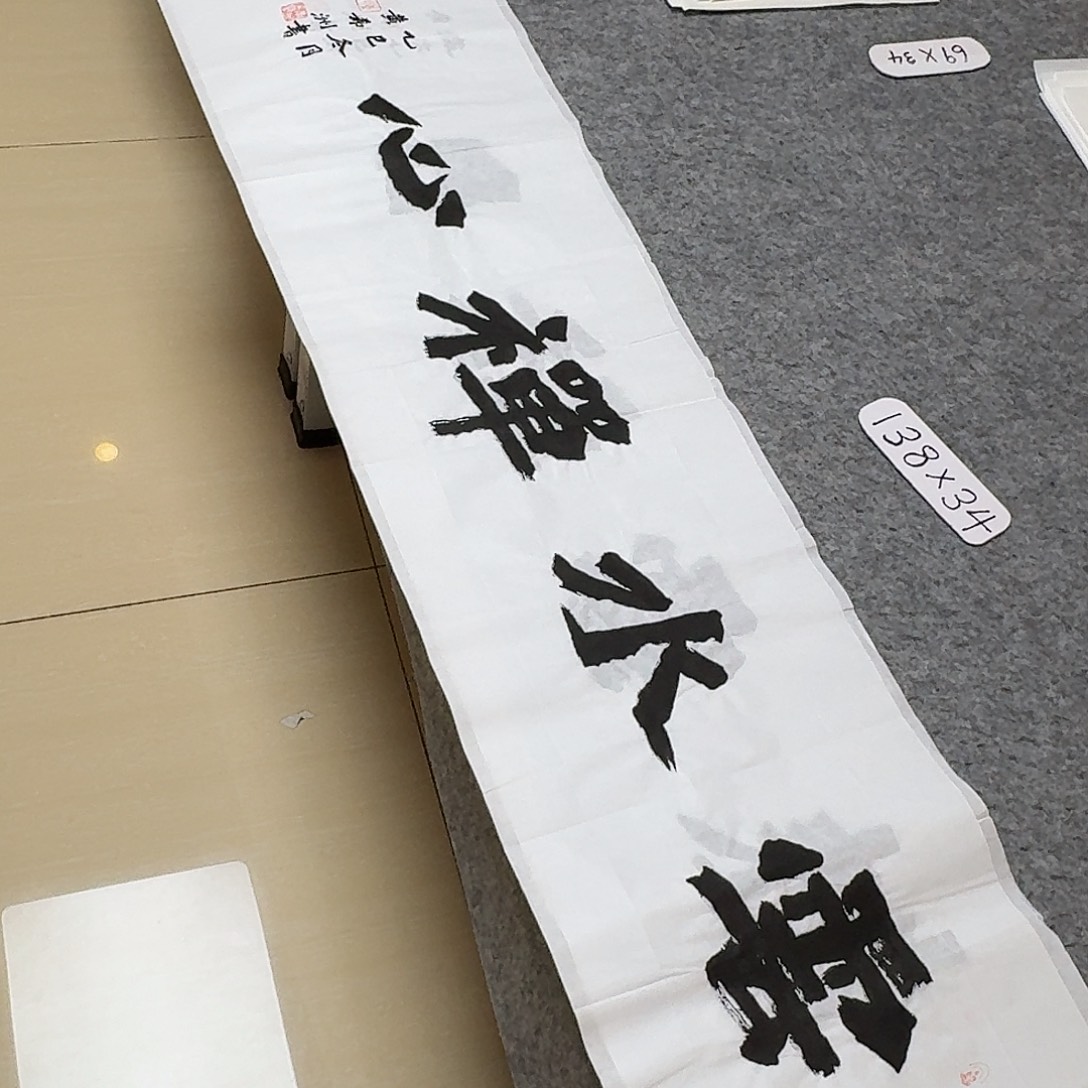 雲水禪心
乙巳冬月
黄希洲書
69×34
138×34